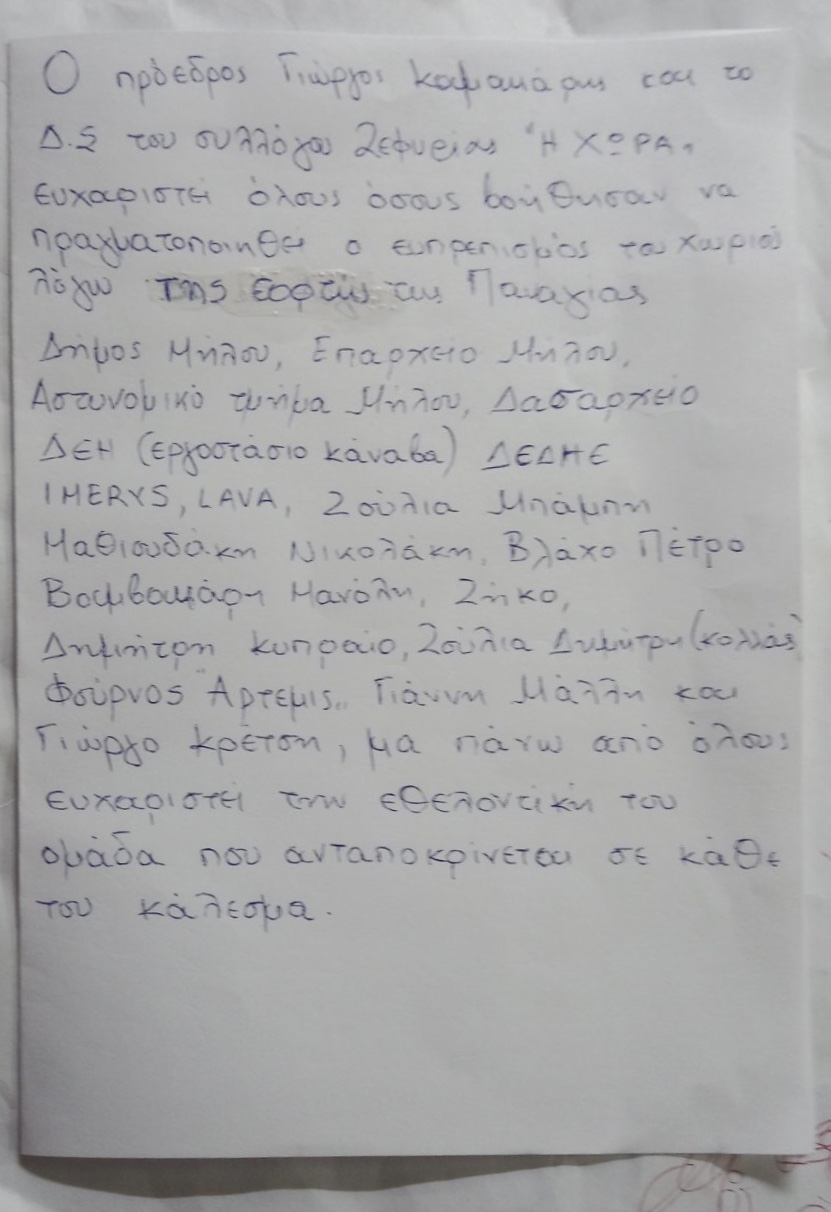 Ο πρόεδρος Γιώργος Καμακάρης και το
Δ.Σ του συλλόγου Ζεφυρίας "Η ΧΩΡΑ"
ευχαριστεί όλους όσους βοήθησαν να
πραγματοποιηθεί ο ευπρεπισμός του χωριού
λόγω της εορτής της Παναγίας
Δήμος Μήλου, Επαρχείο Μήλου,
Αστυνομικό τμήμα Μήλου, Δασαρχείο
ΔΕΗ (εργοστάσιο κάναβα) ΔΕΔΗΕ
IMERYS, LAVA, Ζούλια Μπάμπη
Μαθιουδάκη Νικολάκη, Βλάχο Πέτρο
Βαμβακάρη Μανόλη, Ζήκο,
Δημήτρη κυπραίο, Ζούλια Δημήτρη (κολλάς)
Φούρνος "Αρτεμις" Γιάννη Μάλλη και
Γιώργο Κρέτση, μα πάνω από όλους
ευχαριστεί την εθελοντική του
ομάδα που ανταποκρίνεται σε κάθε
του κάλεσμα.